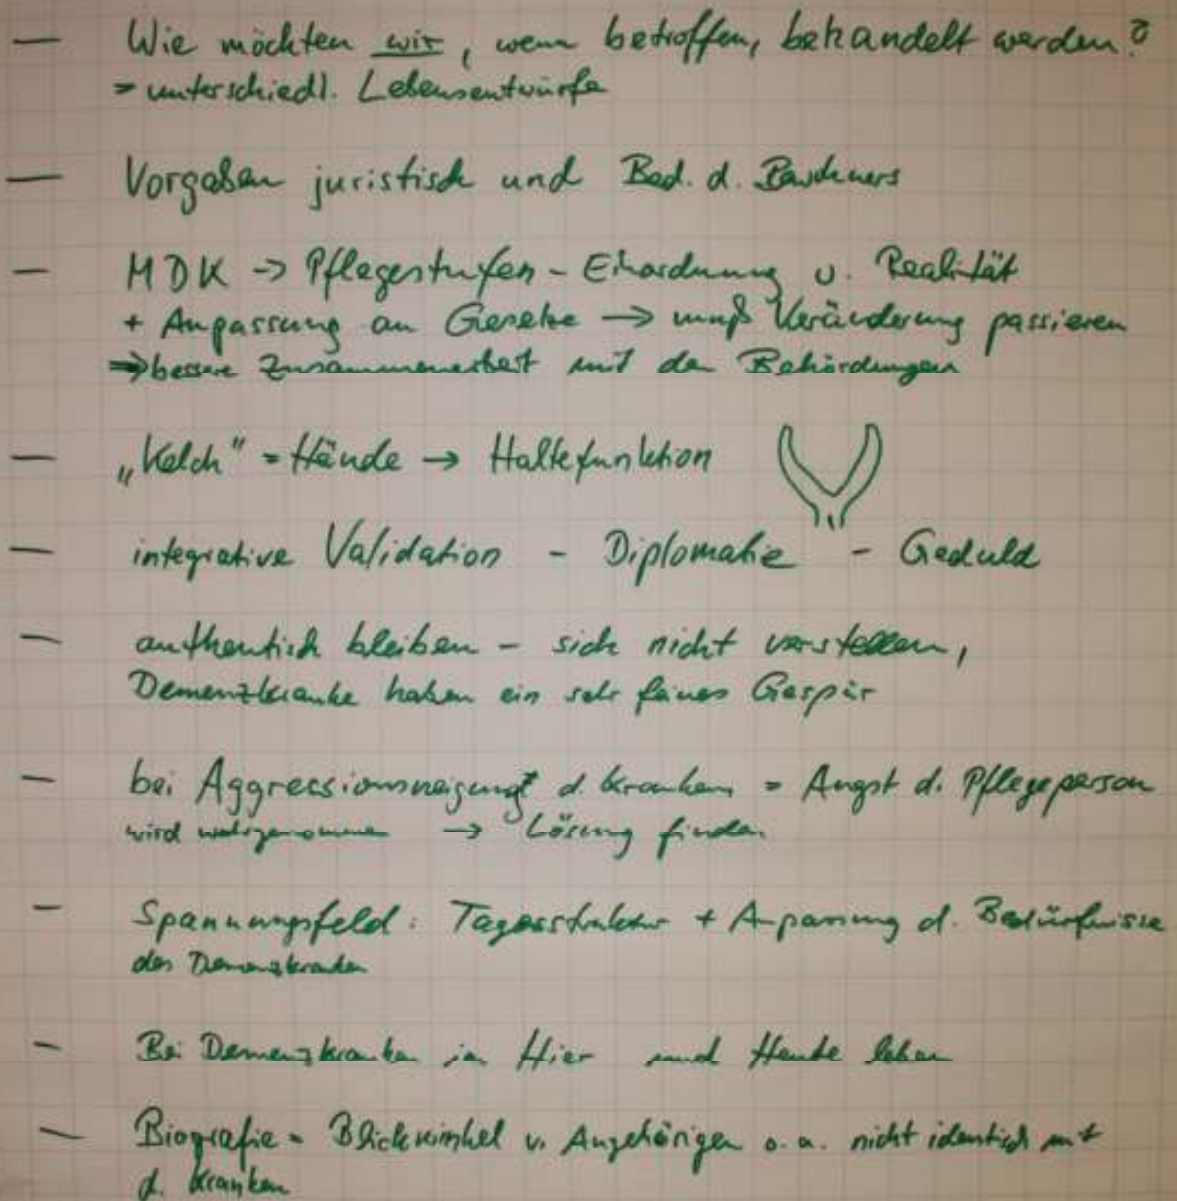 — Wie möchten wir, wenn betroffen, behandelt werden?
= unterschiedl. Lebensentwürfe
— Vorgaben juristisch und Bed. d. Bewohners
— MDK → Pflegestufen - Einordnung u. Realität
+ Anpassung an Gesetze → muß Veränderung passieren
⇒ bessere Zusammenarbeit mit den Behördungen
— „Kelch" = Hände → Haltefunktion
— integrative Validation - Diplomatie - Geduld
— authentisch bleiben - sich nicht verstellen,
Demenzkranke haben ein sehr feines Gespür
— bei Aggressionsneigung d. Kranken = Angst d. Pflegeperson
wird wahrgenommen → Lösung finden
- Spannungsfeld: Tagesstruktur + Anpassung d. Bedürfnisse
des Demenzkranken
- Bei Demenzkranken im Hier und Heute leben
— Biografie = Blickwinkel v. Angehörigen o. a. nicht identisch mit
d. Kranken